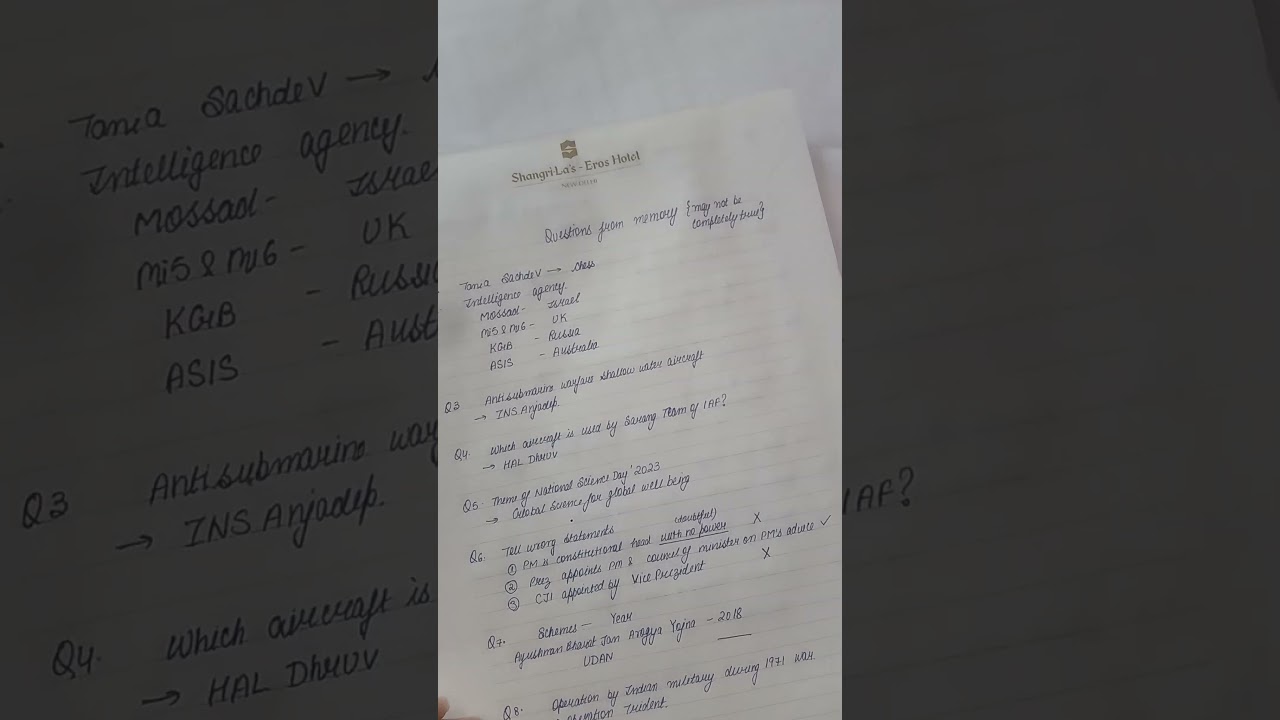 Shangri-La's - Eros Hotel
NEW DELHI
Questions from memory {may not be
completely true}
Tania Sachdev → chess
Intelligence agency.
Mossad - Israel
Mi5 & Mi6 - UK
KGB - Russia
ASIS - Australia
Q3 Antisubmarine warfare shallow water aircraft
→ INS Anjadep.
Q4. Which aircraft is used by Sarang Team of IAF?
→ HAL Dhruv
Q5. Theme of National Science Day' 2023
→ Global Science for global well being
Q6. Tell wrong statements (doubtful)
① PM is constitutional head with no power X
② Prez appoints PM & council of minister on PM's advice ✓
③ CJI appointed by Vice Prezident X
Q7. Schemes — Year
Ayushman Bharat Jan Arogya Yojna - 2018
UDAN
Q8. Operation by Indian military during 1971 war.
Operation Trident.